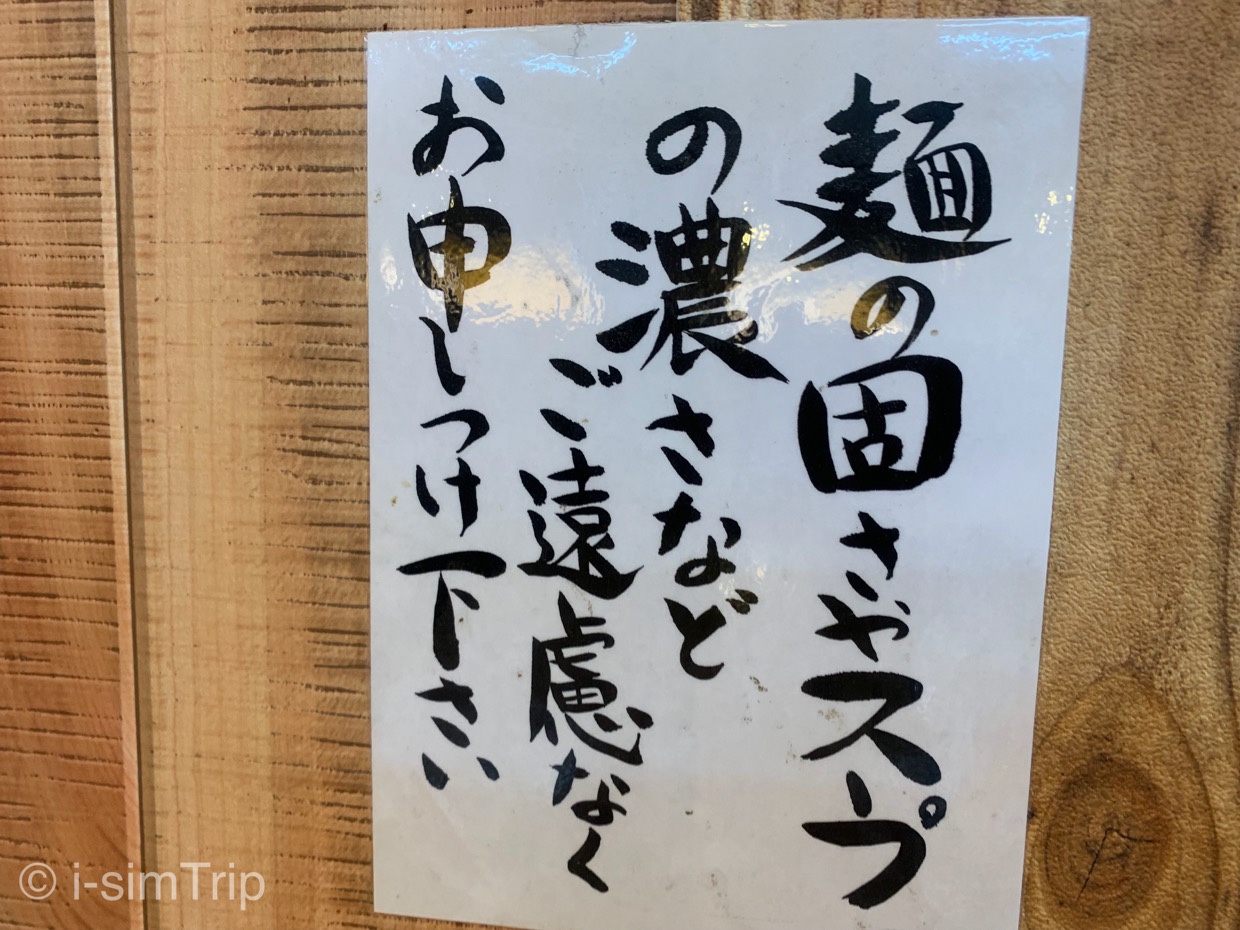 麺の固さやスープ
の濃さなど
ご遠慮なく
お申しつけ下さい
© i-simTrip